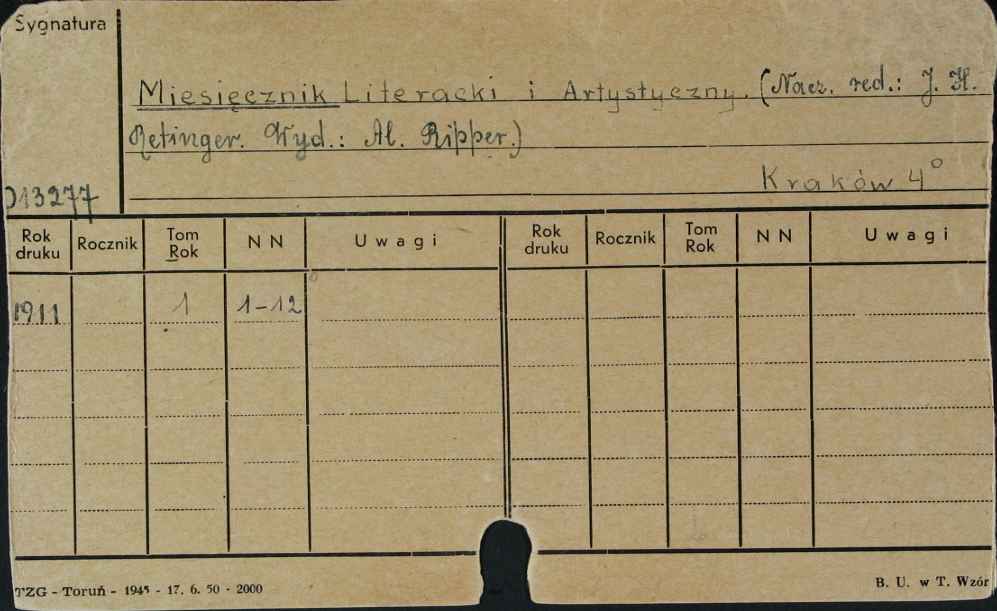 Sygnatura
Miesięcznik Literacki i Artystyczny. (Nacz. red.: J. H.
Retinger. Wyd.: Al. Ripper.)
Kraków 4°
013277
Rok druku Rocznik Tom Rok N N Uwagi Rok druku Rocznik Tom Rok N N Uwagi
1911 1 1-12
TZG - Toruń - 1945 - 17. 6. 50 - 2000
B. U. w T. Wzór